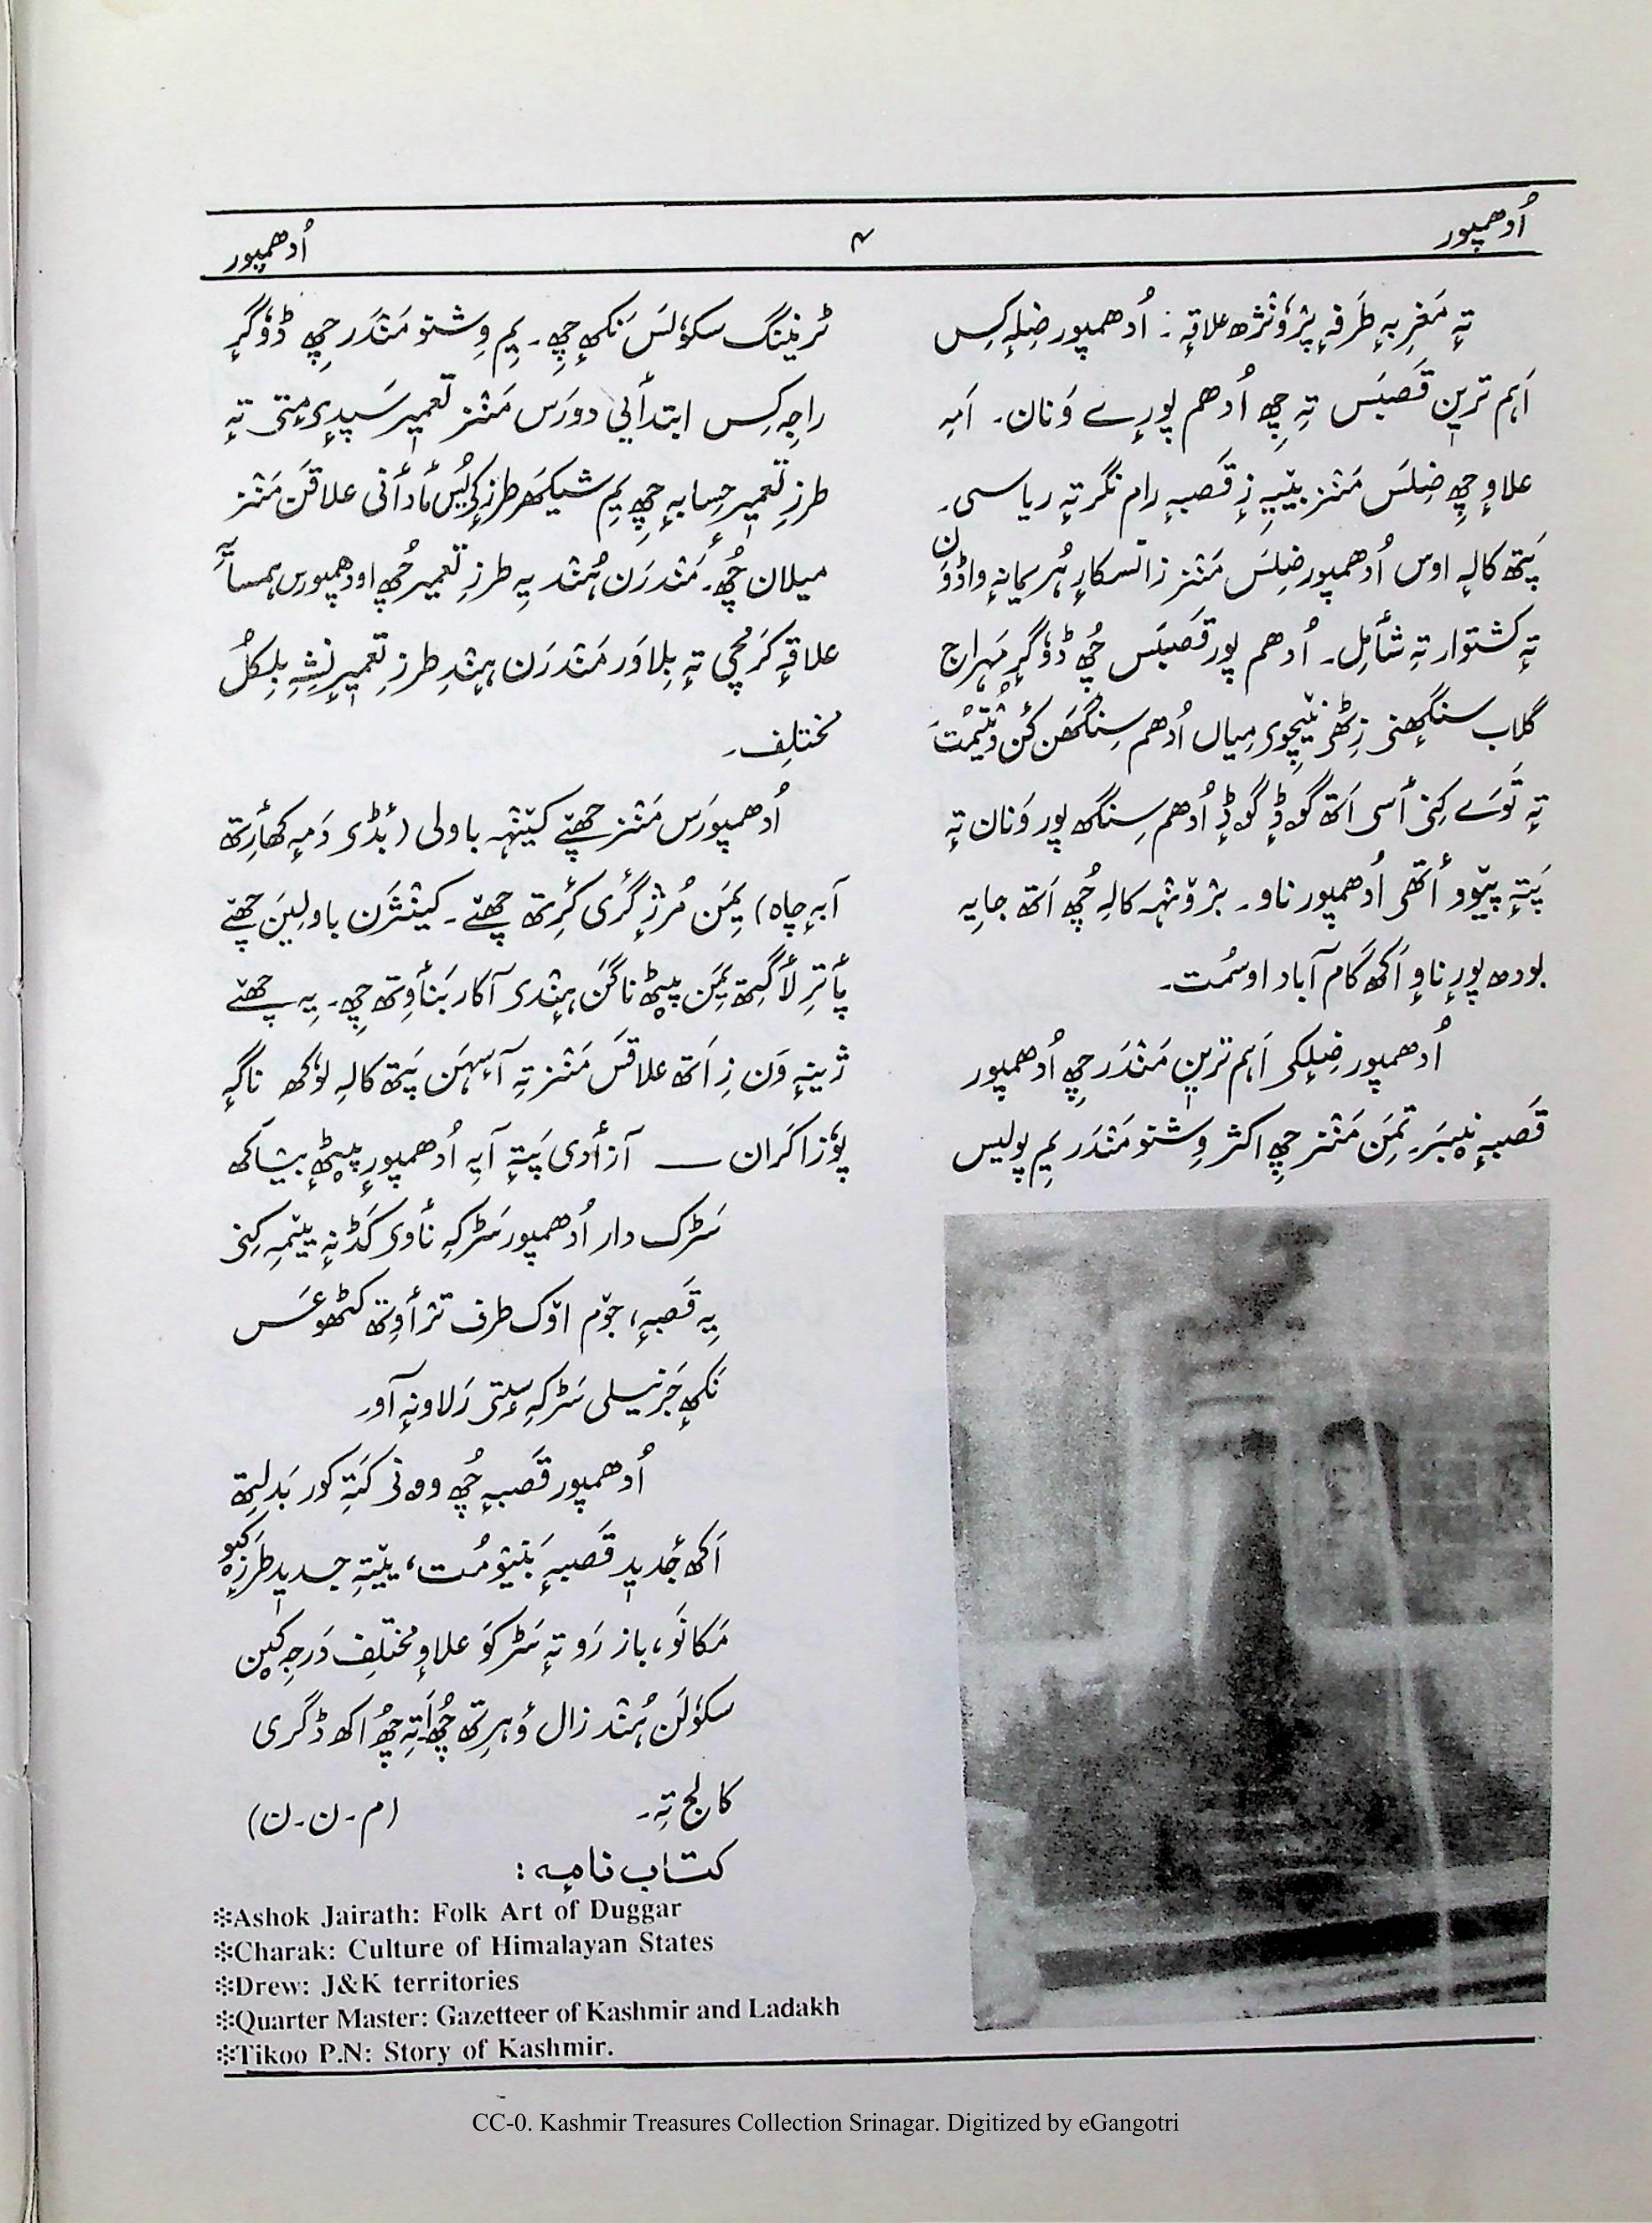 اُدھمپور
۴
اُدھمپور
تہٕ مَغرِبہٕ طَرفہٕ پژٛونٛژھ علاقہٕ : اُدھمپور ضِلہٕ کِس
اَہم ترین قَصبَس تہِ چِھ اُدھم پورے وَنان۔ اَمہِ
علاوٕ چِھ ضِلَس مَنٛز بیٚیہِ زٕ قَصبہٕ رام نگر تہٕ ریاسی۔
پَتھ کالہِ اوس اُدھمپور ضِلَس مَنٛز زانسکار ہُر یمانہٕ واڈوَن
تہٕ کشتوار تہِ شٲمِل۔ اُدھم پور قَصبَس چُھ ڈوگرٕ مَہراج
گلاب سنگھنی زِٹھۍ نیٚچِوۍ میاں اُدھم سِنگھن کُن
تہٕ تَوَے کِنۍ ٲسۍ اَتھ گوڈٕ گوڈٕ اُدھم سِنگھ پور وَنان تہٕ
پَتہٕ پیٚوو اَتھۍ اُدھمپور ناو۔ برٛونٛہہ کالہِ چُھ اَتھ جایہِ
بودھ پور ناوٕ اَکھ گام آباد اوسمُت۔
اُدھمپور ضِلٕکۍ اَہم ترین مَنٛدَر چِھ اُدھمپور
قَصبہٕ نیٚبَر۔ تِمَن مَنٛز چِھ اکثر وِشنو مَنٛدَر یِم پولیس
ٹرینِنگ سکوٗلَس نَکھہٕ چِھ۔ یِم وِشنو مَنٛدَر چِھ ڈوگرٕ
راجہِ کِس ابتدٲیی دورَس مَنٛز تعمیر سَپدیمٕتۍ تہٕ
طرزِ تعمیر حِسابہٕ چِھ یِم شیکھر طرزٕکۍ یُس مٲدٲنی علاقَن مَنٛز
میلان چُھ۔ مَنٛدرَن ہُنٛد یہِ طرزِ تعمیر چُھ اودھمپورس ہمسایہٕ
علاقہٕ کرمچی تہٕ بِلاوَر مَنٛدرَن ہِنٛدِ طرزِ تعمیر نِشہِ بِلکُل
مختلِف۔
اُدھمپورَس مَنٛز چھےٚ کیٚنٛہہ باولی (بٔڈۍ دَمہٕ کھٲرِتھ
آبہٕ چاہ) یِمَن مُرژٕ گٔری کٔرِتھ چھےٚ۔ کینٛژَن باولِیَن چھےٚ
پٲترٕ لٲگِتھ یِمَن پیٚٹھ ناگَن ہِنٛدۍ آکار بَنٲوِتھ چِھ۔ یہِ چھےٚ
ژینہٕ وَن زِ اَتھ علاقَس مَنٛز تہِ آسہَن پَتھ کالہِ لوٗکھ ناگہٕ
پوٗزا کران — آزٲدی پَتہٕ آیہِ اُدھمپور پیٚٹھہٕ بیٚیاکھ
سَڑک دار اُدھمپور سَڑکہِ ناوۍ کَڈنہٕ ییٚمہِ کِنۍ
یہِ قَصبہٕ، جوٚم اوٚک طرف ترٛٲوِتھ کٹھوعَس
نَکھہٕ جَرنیلی سَڑکہِ سٕتۍ رَلاونہٕ آو۔
اُدھمپور قَصبہٕ چُھ وونۍ کَتہِ کور بَدلِتھ
اَکھ جٔدید قَصبہٕ بَنیوٚمُت، ییٚتہِ جدید طَرزٕکیو
مَکانَو، بازرَو تہٕ سَڑکَو علاوٕ مختلِف دَرجہٕ کیٚن
سکوٗلَن ہُنٛد زال وٕہرِتھ چُھ اَتہِ چُھ اکھ ڈگری
کالج تہِ۔ (م۔ن۔ن)
کتاب نامہٕ :
❊Ashok Jairath: Folk Art of Duggar
❊Charak: Culture of Himalayan States
❊Drew: J&K territories
❊Quarter Master: Gazetteer of Kashmir and Ladakh
❊Tikoo P.N: Story of Kashmir.
CC-0. Kashmir Treasures Collection Srinagar. Digitized by eGangotri